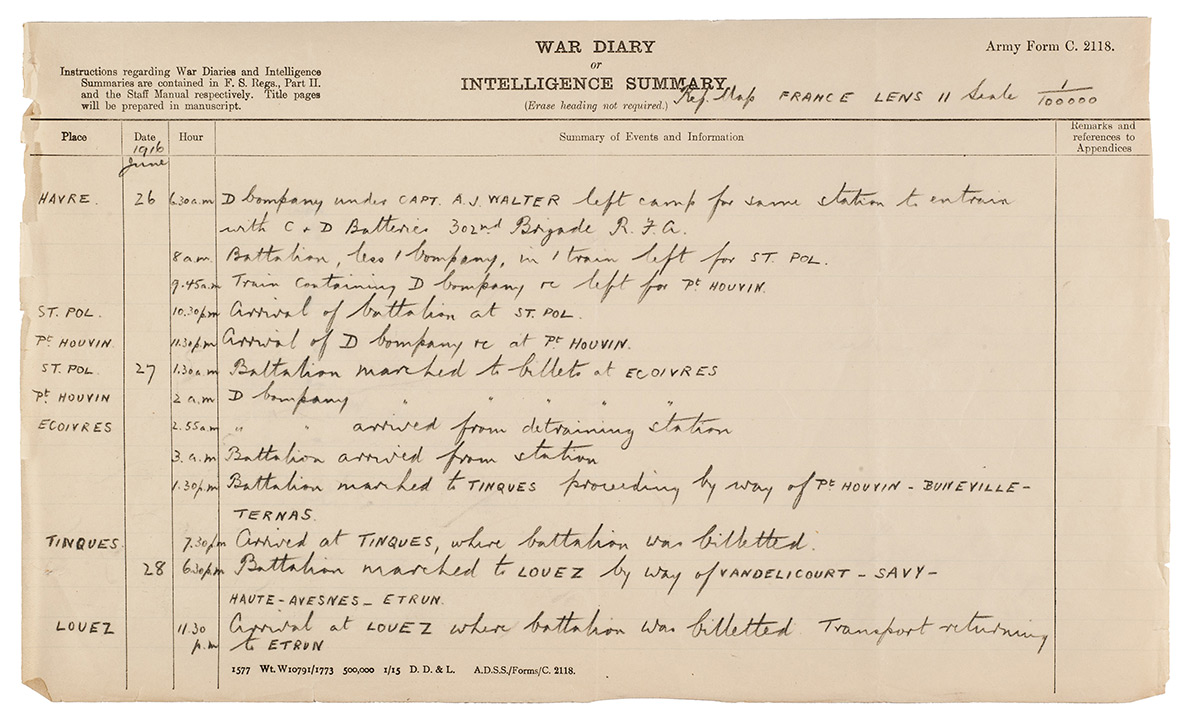 WAR DIARY
or
INTELLIGENCE SUMMARY.
(Erase heading not required.)
Army Form C. 2118.
Instructions regarding War Diaries and Intelligence
Summaries are contained in F. S. Regs., Part II.
and the Staff Manual respectively. Title pages
will be prepared in manuscript.
Ref. Map FRANCE LENS 11 Scale 1/100000
Place Date Hour Summary of Events and Information Remarks and references to Appendices
1916
June
HAVRE. 26 6.30 a.m D Company under CAPT. A.J. WALTER left camp for same station to entrain
with C & D Batteries 302nd Brigade R.F.A.
8 a.m. Battalion, less 1 Company, in 1 train left for ST. POL.
9.45 a.m Train containing D Company &c left for Pt HOUVIN.
ST. POL. 10.30 p.m Arrival of battalion at ST. POL.
Pt HOUVIN 11.30 p.m Arrival of D Company &c at Pt HOUVIN.
ST. POL 27 1.30 a.m Battalion marched to billets at ECOIVRES
Pt HOUVIN 2 a.m D Company " " " " "
ECOIVRES 2.55 a.m " " arrived from detraining station
3. a.m Battalion arrived from station
1.30 p.m Battalion marched to TINQUES proceeding by way of Pt HOUVIN - BUNEVILLE -
TERNAS.
TINQUES. 7.30 pm Arrived at TINQUES, where battalion was billetted.
28 6.30 p.m Battalion marched to LOUEZ by way of VANDELICOURT - SAVY -
HAUTE-AVESNES - ETRUN.
LOUEZ 11.30 Arrival at LOUEZ where battalion was billetted. Transport returning
p.m to ETRUN
1577 Wt. W10791/1773 500,000 1/15 D. D. & L. A.D.S.S./Forms/C. 2118.